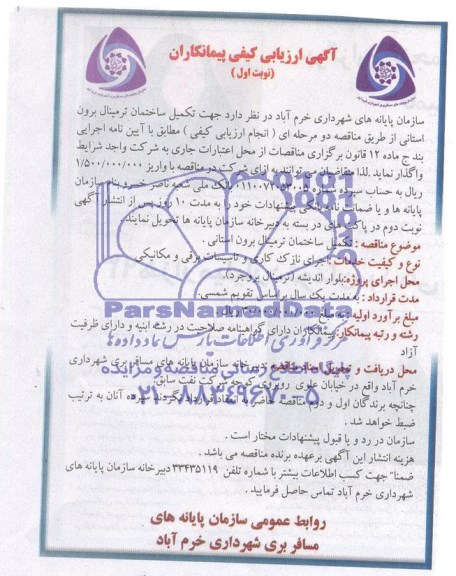 آگهی ارزیابی کیفی پیمانکاران
(نوبت اول)
سازمان پایانه های شهرداری خرم آباد در نظر دارد جهت تکمیل ساختمان ترمینال برون
استانی از طریق مناقصه دو مرحله ای ( انجام ارزیابی کیفی ) مطابق با آیین نامه اجرایی
بند ج ماده ۱۲ قانون برگزاری مناقصات از محل اعتبارات جاری به شرکت واجد شرایط
واگذار نماید .لذا متقاضیان می توانند به ازای شرکت در مناقصه با واریز ۱/۵۰۰/۰۰۰/۰۰۰
ریال به حساب سپرده شماره بانک ملی شعبه ناصر خسرو بنام سازمان
پایانه ها و یا ضمانت نامه بانکی پیشنهادات خود را به مدت ۱۰ روز پس از انتشار آگهی
نوبت دوم در پاکت های در بسته به دبیرخانه سازمان پایانه ها تحویل نمایند.
موضوع مناقصه : تکمیل ساختمان ترمینال برون استانی .
نوع و کیفیت خدمات :اجرای نازک کاری و تاسیسات برقی و مکانیکی
محل اجرای پروژه:بلوار اندیشه (ترمینال بروجرد).
مدت قرارداد : به مدت یک سال بر اساس تقویم شمسی.
مبلغ برآورد اولیه
رشته و رتبه پیمانکار: پیمانکاران دارای گواهینامه صلاحیت در رشته ابنیه و دارای ظرفیت
آزاد
محل دریافت و تحویل اسناد مناقصه دبیرخانه سازمان پایانه های مسافربری شهرداری
خرم آباد واقع در خیابان علوی روبروی کوچه شرکت نفت سابق.
چنانچه برندگان اول و دوم مناقصه حاضر به انعقاد قرارداد نگردند سپرده آنان به ترتیب
ضبط خواهد شد .
سازمان در رد و یا قبول پیشنهادات مختار است .
هزینه انتشار این آگهی برعهده برنده مناقصه می باشد .
ضمنا" جهت کسب اطلاعات بیشتر با شماره تلفن ۳۳۴۳۵۱۱۹ دبیرخانه سازمان پایانه های
شهرداری خرم آباد تماس حاصل فرمایید .
روابط عمومی سازمان پایانه های
مسافر بری شهرداری خرم آباد
ParsNamadData
مرکز فرآوری اطلاعات پارس نماد داده ها
پایگاه اطلاع رسانی مناقصه و مزایده
۰۲۱-۸۸۳۴۹۶۷۰-۵